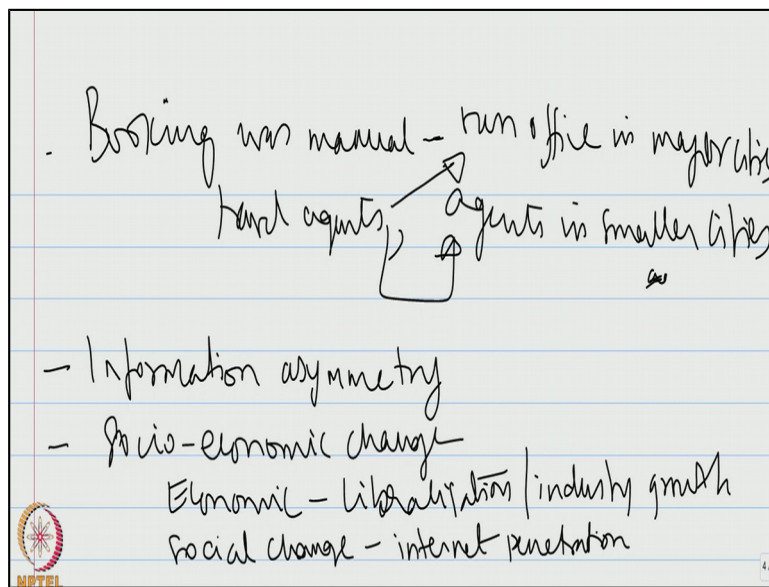 . Booking was manual - run office in major cities
travel agents, agents in smaller cities
- Information asymmetry
- Socio-economic change
Economic - Liberalization / industry growth
Social change - internet penetration
NPTEL
4